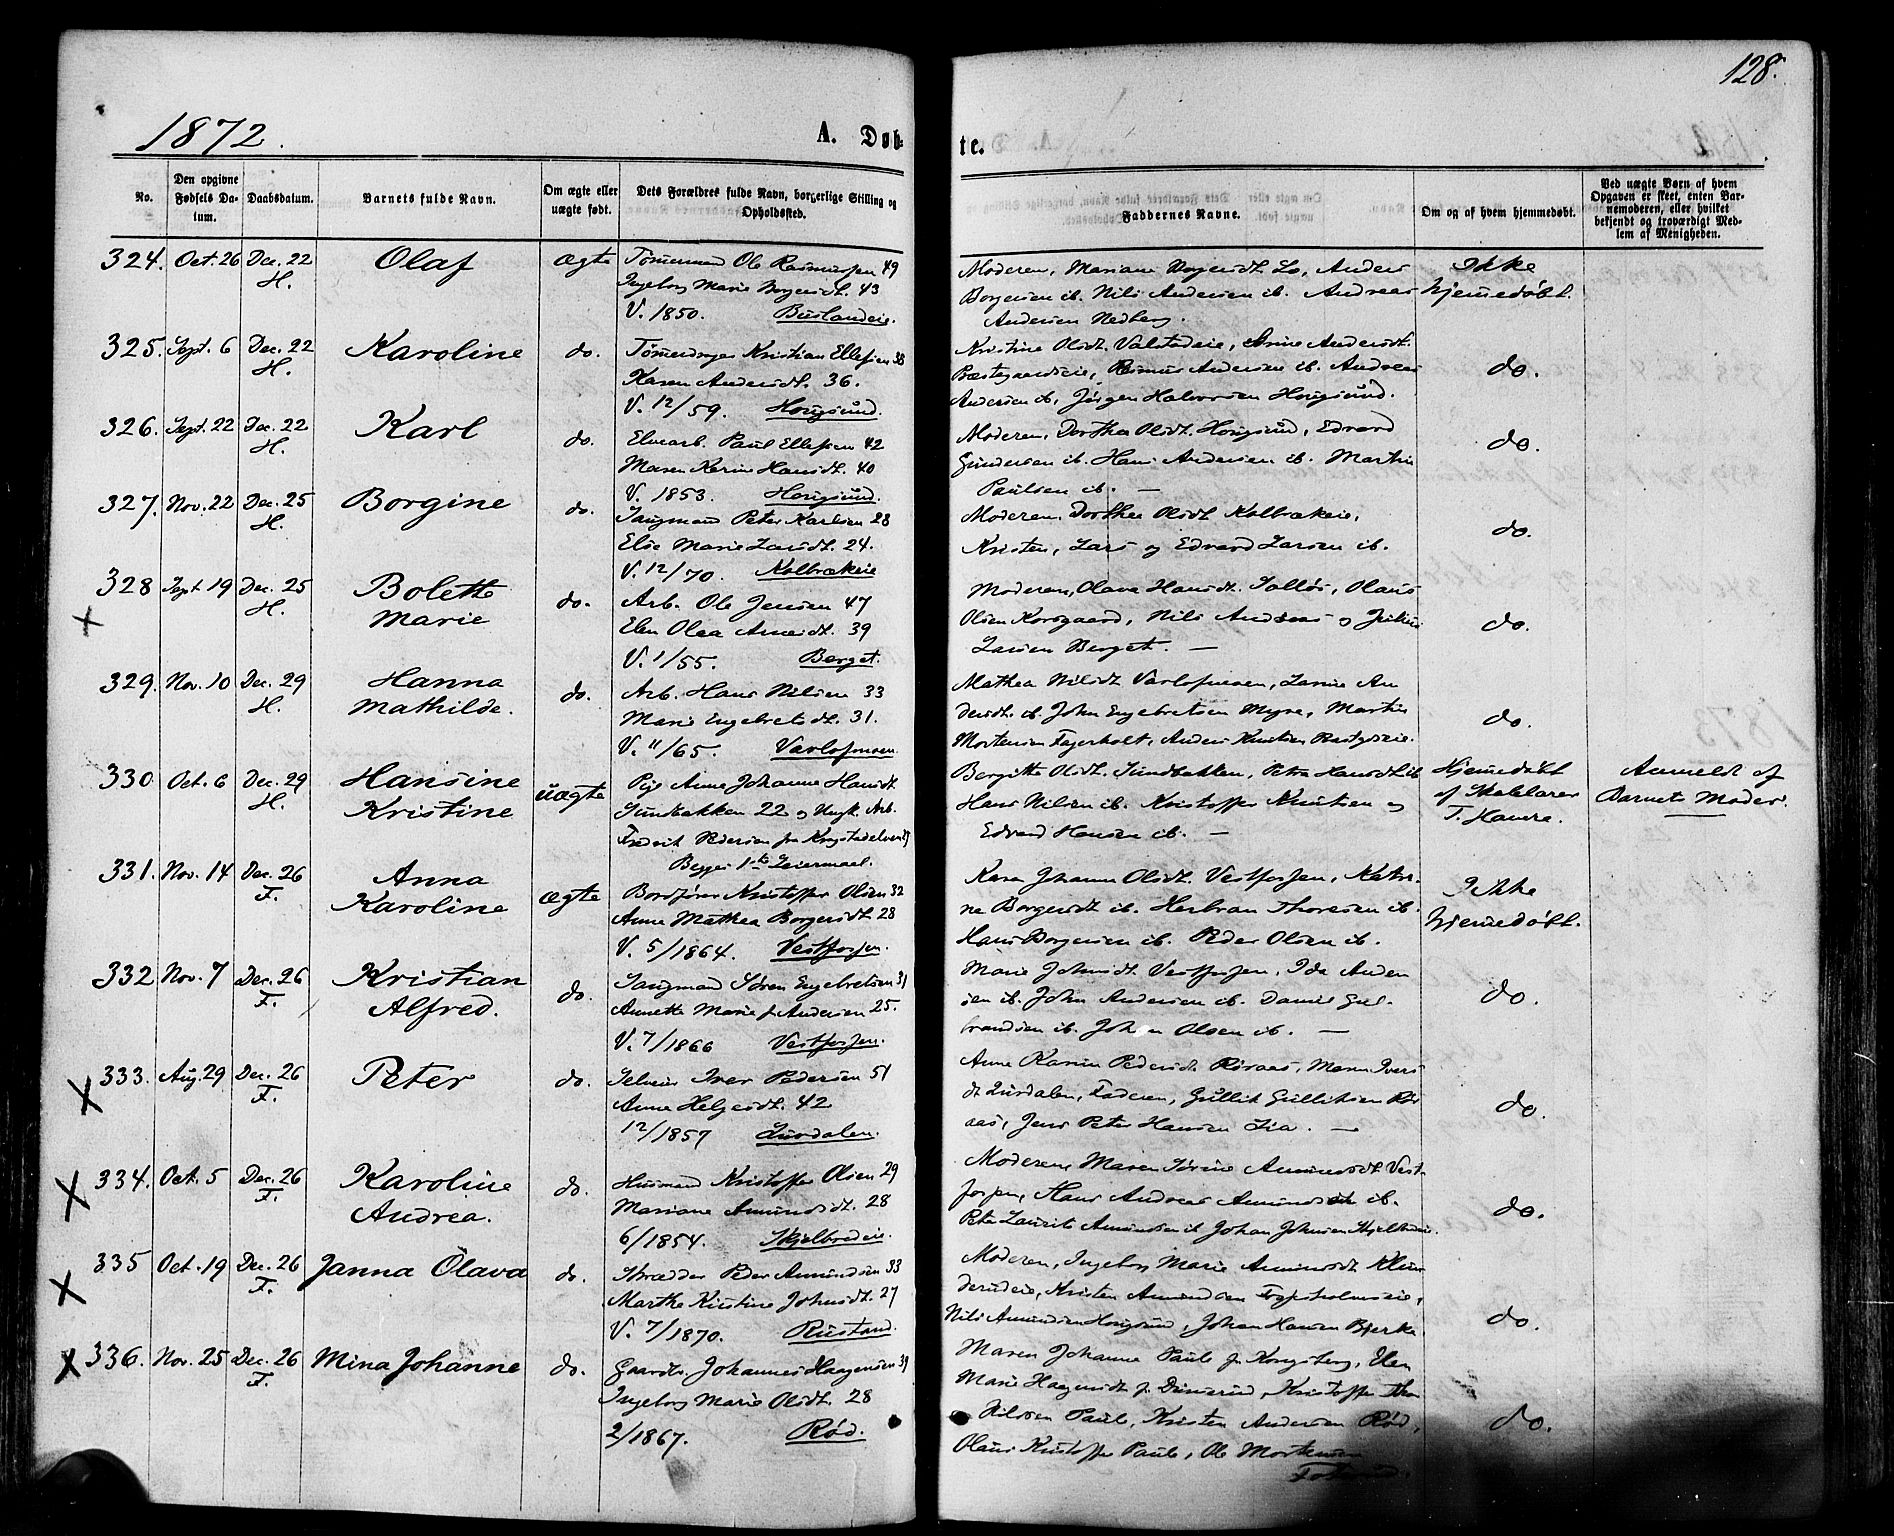 128.
1872.
A. Døb-
te.
No.
Den opgivne
Fødsels Da-
tum.
Daabsdatum.
Barnets fulde Navn.
Om ægte eller
uægte født.
Dets Forældres fulde Navn, borgerlige Stilling og
Opholdssted.
Faddernes Navne.
Om og af hvem hjemmedøbt.
Ved uægte Børn af hvem
Opgaven er skeet, enten Bar-
nemoderen, eller hvilket
bekjendt og troværdigt Med-
lem af Menigheden.
324. Oct. 26 Dec. 22 H. Olaf ægte
Tømmermand Ole Rasmussen 49
Ingeborg Marie Borgersdt. 43
V. 1850. Buslandeie.
Moderen, Mariane Lo, Anders
Borgersen ib. Nils Andersen ib. Andreas
Andersen Nedberg.
Ikke
hjemmedøbt.
325. Sept. 6 Dec. 22 H. Karoline do.
Kristian Ellefsen 38
Karen Andersdt. 36.
V. 12/59. Hougsund.
Kristine Olsdt. Andersdt.
Rasmus Andersen ib. Andreas
Andersen ib, Jørgen Halvorsen Hougsund.
do.
326. Sept. 22 Dec. 22 H. Karl do.
Paul Ellefsen 42
Maren Karine Hansdt. 40
V. 1853. Hougsund.
Moderen, Dorthea Olsdt. Hougsund, Edvard
Gundersen ib. Hans Andersen ib. Martin
Paulsen ib. —
do.
327. Nov. 22 Dec. 25 H. Borgine do.
Saugmand Peter Karlsen 28
Else Marie Larsdt. 24.
V. 12/70. Kolbrækeie
Moderen, Dorthea Olsdt. Kolbrækeie,
Kristen, Lars og Edvard Larsen ib.
do.
328 Sept 19 Dec. 25 H. Bolette
Marie do.
Arb. Ole Jensen 47
Elen Olea Arnesdt. 39
V. 1/55. Berget.
Moderen, Olava Hansdt. Olaus
Olsen Korsgaard, Nils Andreas og Julius
Larsen Berget. —
do.
329. Nov. 10 Dec. 29 H. Hanna
Mathilde. do.
Arb. Hans Nilsen 33
Marie Engebretsdt. 31.
V. 11/65.
Mathea Nilsdt An-
dersdt. ib. John Engebretsen Myre, Martin
Mortensen Fagerholt, Anders Kristian
do.
330 Oct. 6 Dec. 29 H. Hansine
Kristine uægte
Pige Anne Johanne Hansdt.
Sundbakken 22 og Ungk. Arb.
Fredrik Pedersen fra
Begges 1ste Leiermaal.
Bergitte Olsdt. Sundbakken, Petra Hansdt. ib
Hans Nilsen ib. Kristoffer Knutsen og
Edvard Hansen ib. —
Hjemmedøbt
af Skolelærer
T. Hamre.
Anmeldt af
Barnets Moder.
331. Nov. 14 Dec. 26 F. Anna
Karoline ægte
Kristoffer Olsen 32
Anne Mathea Borgersdt. 28
V. 5/1864. Vestfossen.
Karen Johanne Olsdt. Vestfossen, Katri-
ne Borgersdt ib. Herbran Thoresen ib.
Hans Borgersen ib. Peder Olsen ib.
Ikke
hjemmedøbt.
332 Nov. 7 Dec. 26 F. Kristian
Alfred. do.
Saugmand Søren Engebretsen 31
Annette Marie f. Andersen 25.
V. 7/1866 Vestfossen.
Marie Johnsdt. Vestfossen, Ida Ander-
sen ib. John Andersen ib. Daniel Gul-
brandsen ib. Johan Olsen ib. —
do.
333. Aug. 29 Dec. 26 F. Peter do.
Selveier Iver Pedersen 51
Anne Helgesdt. 42
12/1857 Lurdalen.
Anne Karine Pedersdt. Røraas, Maren Ivers-
dt Lurdalen, Faderen, Gullik Gulliksen Rør-
aas, Jens Peter Hansen Lia. —
do.
334. Oct. 5 Dec. 26 F. Karoline
Andrea. do.
Husmand Kristoffer Olsen 29
Mariane Amundsdt. 28
6/1854. Skjelbredeie.
Moderen, Maren Sørine Amundsdt. Vest-
fossen, Hans Andreas Amundsen ib.
Peter Laurits Amundsen ib Johan Johnsen Skjelbredeie.
do.
335 Oct. 19 Dec. 26 F. Janna Olava do.
Skrædder Peder Amundsen 33
Marthe Kirstine Johnsdt. 27
V. 7/1870. Rustand.
Moderen, Ingeborg Marie Amundsdt
Kristen Amundsen
Nils Amundsen Hougsund, Johan Hansen Bjerke
do.
336. Nov. 25 Dec. 26 F. Mina Johanne do.
Gaardb. Johannes Haagensen 39
Ingeborg Marie Olsdt. 28
2/1867. Rød.
Maren Johanne Paule fr Kongsberg, Elen
Marie Haagensdt f. Kristoffer Tho-
Nilssen Paule, Kristen Andersen Rød,
Olaus Kristoffer Paule, Ole Mortensen
do.